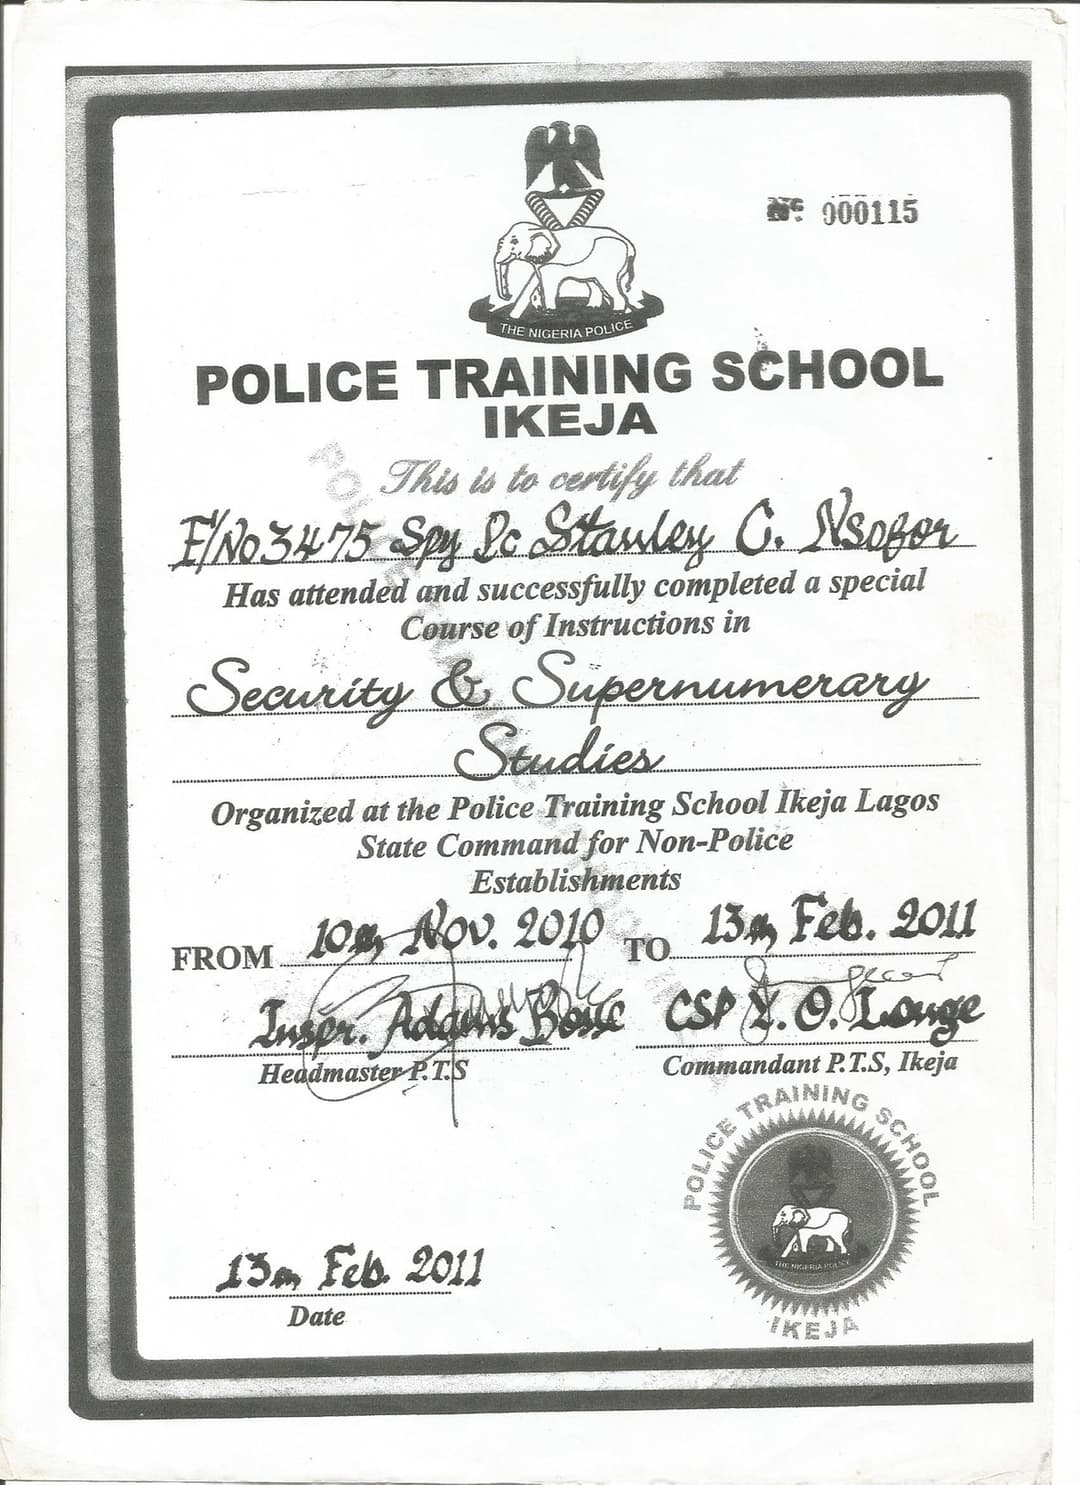 Nº 000115
THE NIGERIA POLICE
POLICE TRAINING SCHOOL
IKEJA
This is to certify that
F/No 3475 Spy Pc Stanley C. Nsofor
Has attended and successfully completed a special
Course of Instructions in
Security & Supernumerary
Studies
Organized at the Police Training School Ikeja Lagos
State Command for Non-Police
Establishments
FROM 10th Nov. 2010 TO 13th Feb. 2011
Inspr. Adams Bose CSP Y. O. Longe
Headmaster P.T.S Commandant P.T.S, Ikeja
POLICE TRAINING SCHOOL
THE NIGERIA POLICE
IKEJA
13th Feb. 2011
Date